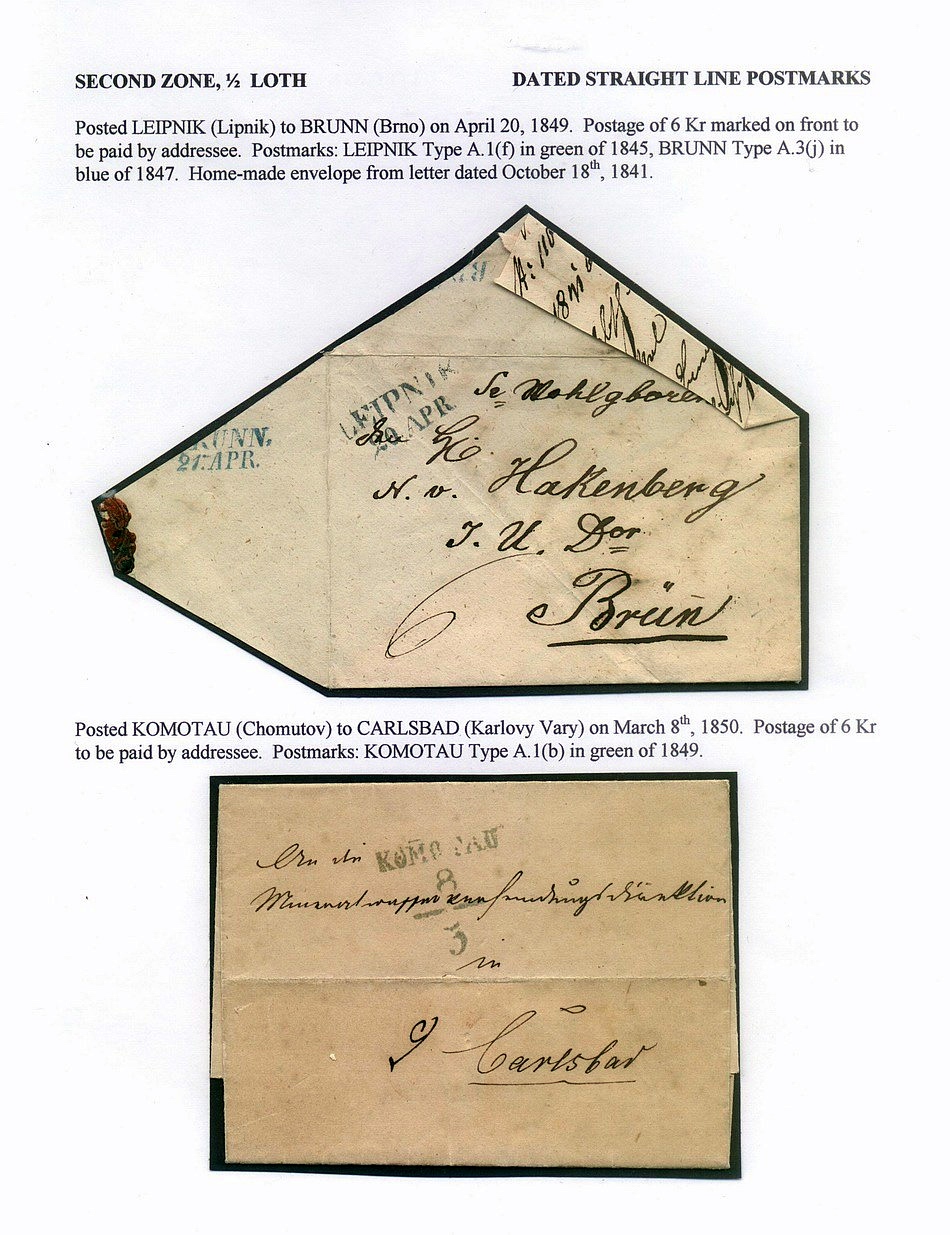 SECOND ZONE, ½ LOTH
DATED STRAIGHT LINE POSTMARKS
Posted LEIPNIK (Lipnik) to BRUNN (Brno) on April 20, 1849. Postage of 6 Kr marked on front to
be paid by addressee. Postmarks: LEIPNIK Type A.1(f) in green of 1845, BRUNN Type A.3(j) in
blue of 1847. Home-made envelope from letter dated October 18th, 1841.
LEIPNIK
20. APR.
RUNN.
21. APR.
Se Wohlgboren
H.
N. v. Hakenberg
J. U. Dor
Brün
6
Posted KOMOTAU (Chomutov) to CARLSBAD (Karlovy Vary) on March 8th, 1850. Postage of 6 Kr
to be paid by addressee. Postmarks: KOMOTAU Type A.1(b) in green of 1849.
KOMOTAU
8
3
An die
Mineralwasserversendungsdirektion
in
Carlsbad